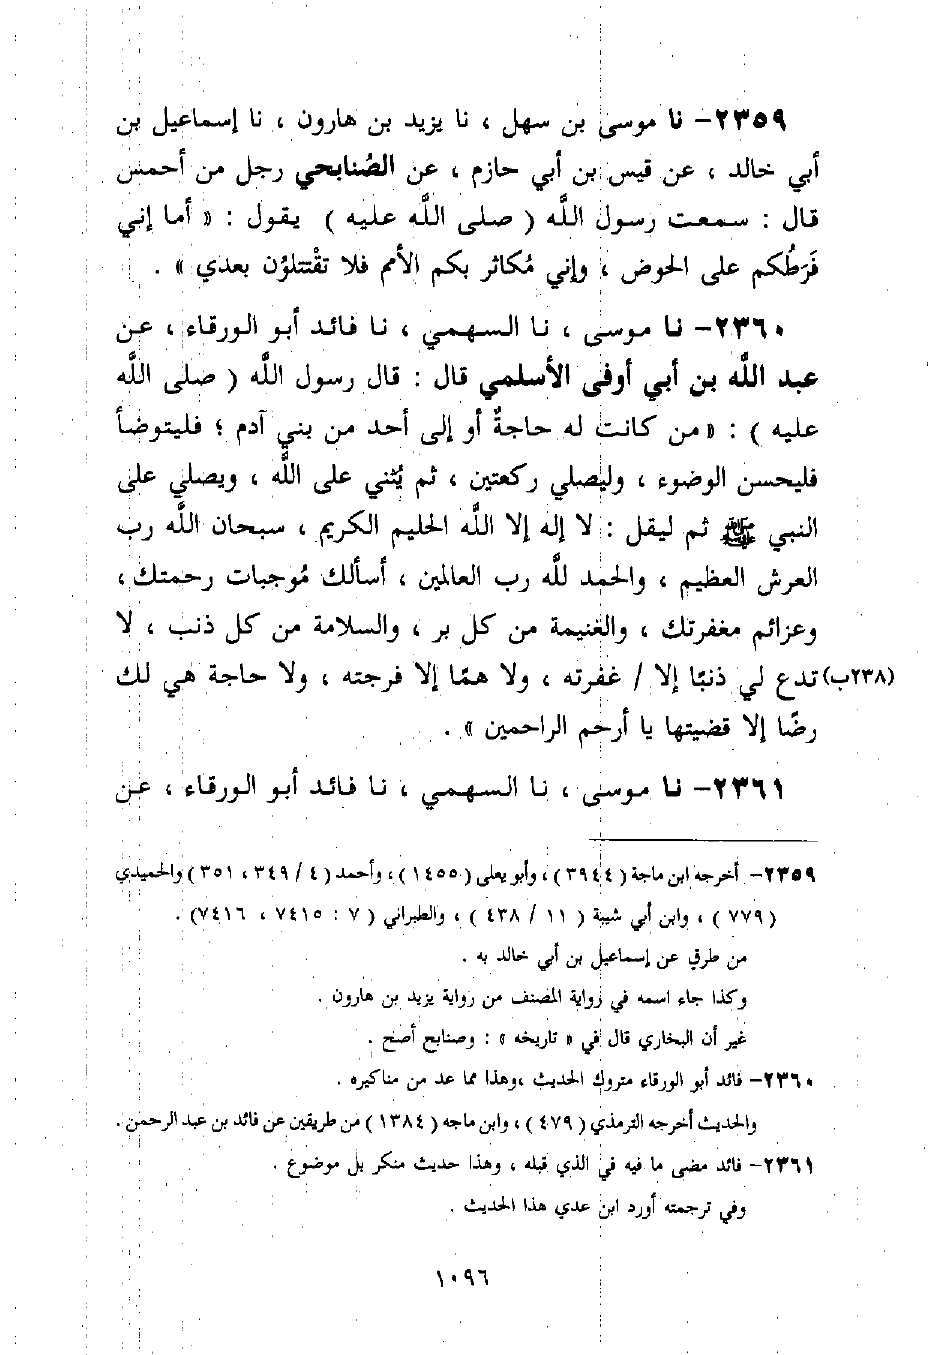 ٢٣٥٩- نا موسى بن سهل ، نا يزيد بن هارون ، نا إسماعيل بن
أبي خالد ، عن قيس بن أبي حازم ، عن الصُنابحي رجل من أحمس
قال : سمعت رسول اللَّه ( صلى اللَّه عليه ) يقول : « أما إني
فَرَطُكم على الحوض ، وإني مُكاثر بكم الأمم فلا تقْتتلوُن بعدي » .
٢٣٦٠- نا موسى ، نا السهمي ، نا فائد أبو الورقاء ، عن
عبد اللَّه بن أبي أوفى الأسلمي قال : قال رسول اللَّه ( صلى اللَّه
عليه ) : « من كانت له حاجةٌ أو إلى أحد من بني آدم ؛ فليتوضأ
فليحسن الوضوء ، وليصلي ركعتين ، ثم يُثني على اللَّه ، ويصلي على
النبي ﷺ ثم ليقل : لا إله إلا اللَّه الحليم الكريم ، سبحان اللَّه رب
العرش العظيم ، والحمد للَّه رب العالمين ، أسألك مُوجبات رحمتك ،
وعزائم مغفرتك ، والغنيمة من كل بر ، والسلامة من كل ذنب ، لا
(٢٣٨ب) تدع لي ذنبًا إلا / غفرته ، ولا همًا إلا فرجته ، ولا حاجة هي لك
رضًا إلا قضيتها يا أرحم الراحمين » .
٢٣٦١- نا موسى ، نا السهمي ، نا فائد أبو الورقاء ، عن
٢٣٥٩- أخرجه ابن ماجة ( ٣٩٤٤ ) ، وأبو يعلى ( ١٤٥٥ ) ، وأحمد ( ٤ / ٣٤٩ ، ٣٥١ ) والحميدي
( ٧٧٩ ) ، وابن أبي شيبة ( ١١ / ٤٣٨ ) ، والطبراني ( ٧ : ٧٤١٥ ، ٧٤١٦) .
من طرق عن إسماعيل بن أبي خالد به .
وكذا جاء اسمه في رواية المصنف من رواية يزيد بن هارون .
غير أن البخاري قال في « تاريخه » : وصنابح أصح .
٢٣٦٠- فائد أبو الورقاء متروك الحديث ،وهذا مما عد من مناكيره .
والحديث أخرجه الترمذي ( ٤٧٩ ) ، وابن ماجه ( ١٣٨٤ ) من طريقين عن فائد بن عبد الرحمن .
٢٣٦١- فائد مضى ما فيه في الذي قبله ، وهذا حديث منكر بل موضوع .
وفي ترجمته أورد ابن عدي هذا الحديث .
١٠٩٦